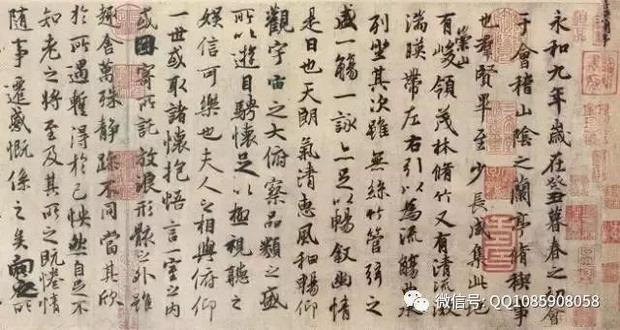 永和九年歲在癸丑暮春之初會
于會稽山陰之蘭亭脩稧事
也羣賢畢至少長咸集此地
有崇山峻領茂林脩竹又有清流激
湍暎帶左右引以為流觴曲水
列坐其次雖無絲竹管弦之
盛一觴一詠亦足以暢叙幽情
是日也天朗氣清惠風和暢仰
觀宇宙之大俯察品類之盛
所以遊目騁懷足以極視聽之
娛信可樂也夫人之相與俯仰
一世或取諸懷抱悟言一室之內
或因寄所託放浪形骸之外雖
趣舍萬殊靜躁不同當其欣
於所遇暫得於己怏然自足不
知老之將至及其所之既惓情
隨事遷感慨係之矣向之
微信号: QQ1085908058